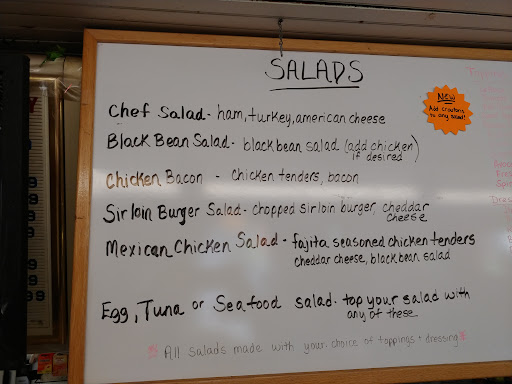 SALADS
New
Add croutons
to any salad!
Chef Salad - ham, turkey, american cheese
Black Bean Salad - black bean salad (add chicken
if desired)
Chicken Bacon - Chicken tenders, bacon
Sirloin Burger Salad - chopped sirloin burger, cheddar
cheese
Mexican Chicken Salad - fajita seasoned chicken tenders
cheddar cheese, black bean salad
Egg, Tuna or Seafood salad - top your salad with
any of these
All salads made with your choice of toppings + dressing